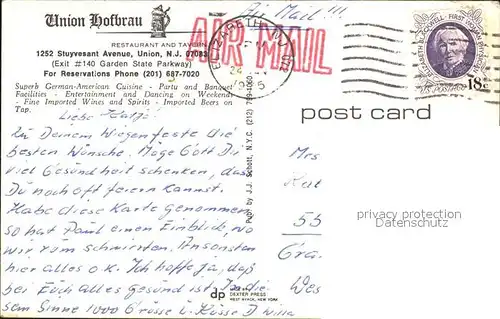 Union Hofbrau
Air Mail!!!
RESTAURANT AND TAVERN
1252 Stuyvesant Avenue, Union, N.J. 07083
(Exit #140 Garden State Parkway)
For Reservations Phone (201) 687-7020
Superb German-American Cuisine - Party and Banquet
Facilities - Entertainment and Dancing on Weekends
- Fine Imported Wines and Spirits - Imported Beers on
Tap.
AIR MAIL
ELIZABETH, NJ
24
18c
US POSTAGE
FIRST WOMAN PHYSICIAN
post card
Liebe
Zu Deinem Wiegenfeste die
besten Wünsche. Möge Gott Dir
viel Gesundheit schenken, das
Du noch oft feiern kannst.
Habe diese Karte genommen
so hat Paul einen Einblick, wo
wir vom schwirrten. Ansonsten
hier alles o.K. Ich hoffe ja, daß
bei Euch alles gesund ist. In die
sem Sinne 1000 Grüsse u. Küsse D
Publ by J.J. Schott, N.Y.C. (212) 799-1060
dp
DEXTER PRESS
WEST NYACK, NEW YORK
Mrs
55
Gra
Wes
privacy protection
Datenschutz